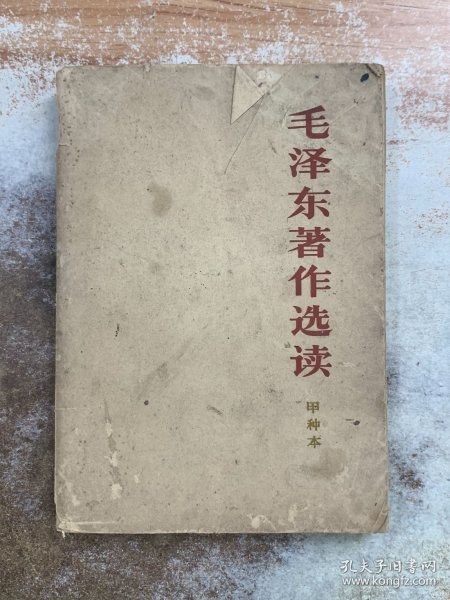 毛泽东著作选读
甲种本
孔夫子旧书网
www.kongfz.com